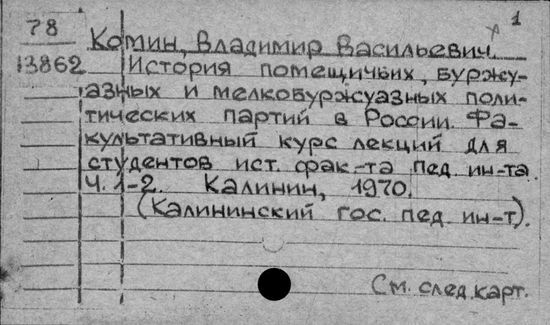 1
78
13862
Комин, Владимир Васильевич.
История помещичьих, буржу-
азных и мелкобуржуазных поли-
тических партий в России. Фа-
культативный курс лекций для
студентов ист. фак-та пед. ин-та.
Ч. 1-2. Калинин, 1970.
(Калининский гос. пед. ин-т).
См. след. карт.